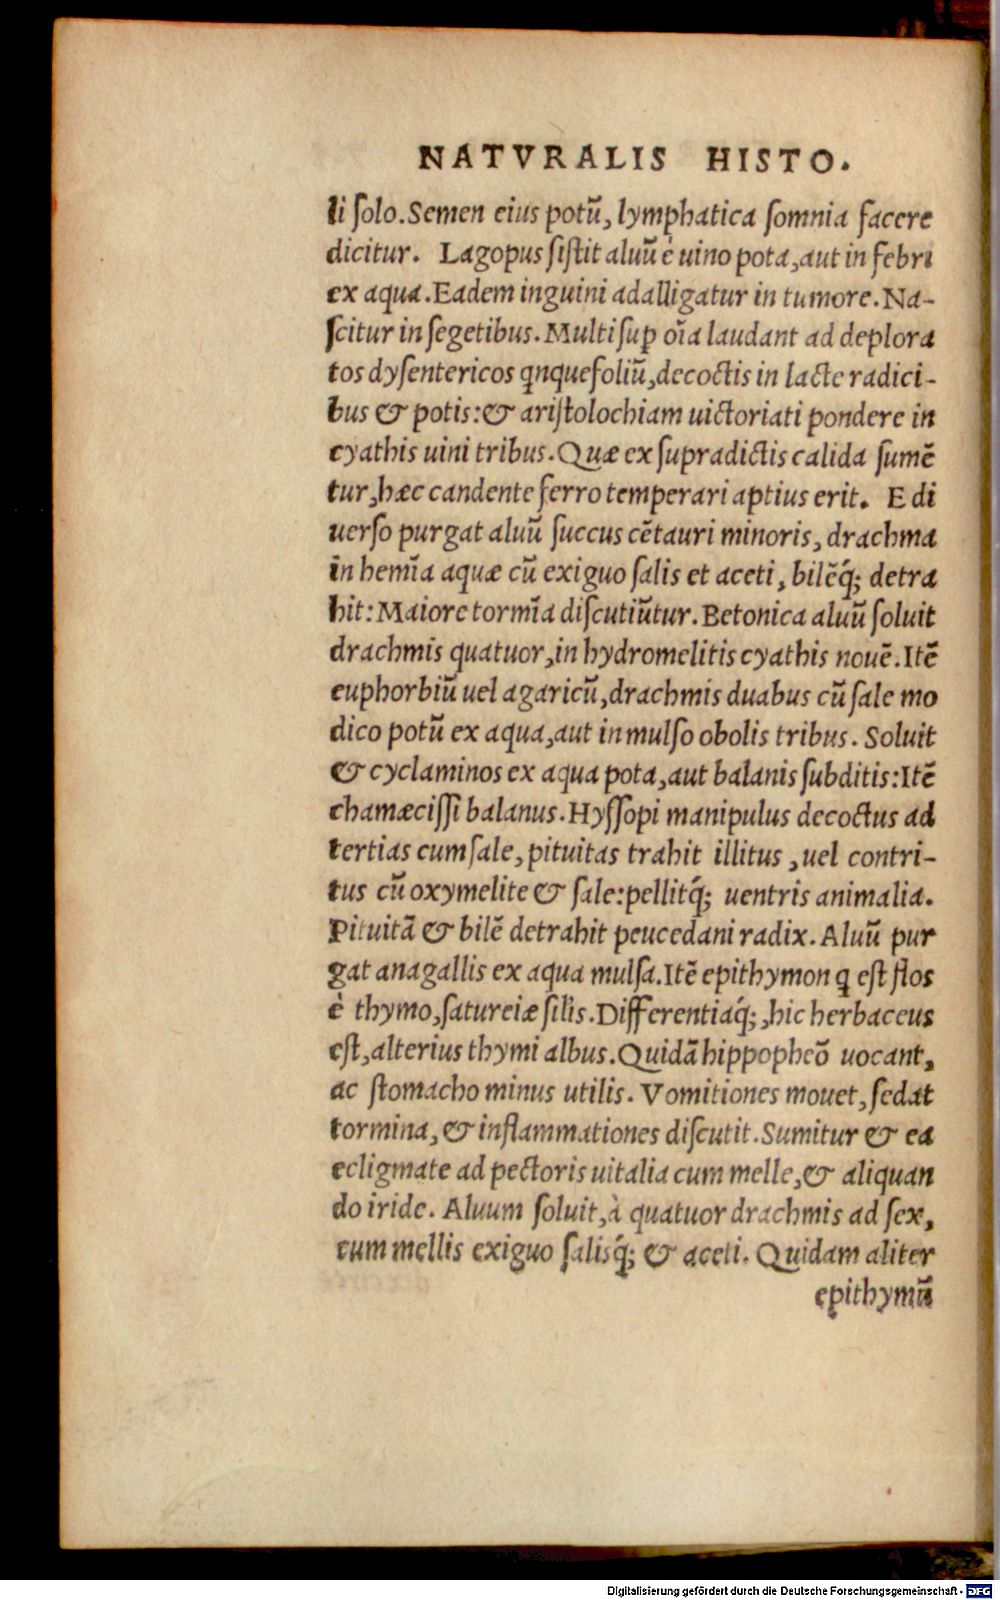 NATVRALIS HISTO.
li ſolo. Semen eius potũ, lymphatica ſomnia facere
dicitur. Lagopus ſiſtit aluũ è uino pota, aut in febri
ex aqua. Eadem inguini adalligatur in tumore. Na-
ſcitur in ſegetibus. Multi ſuꝑ oĩa laudant ad deplora
tos dyſentericos qnquefoliũ, decoctis in lacte radici-
bus & potis: & ariſtolochiam uictoriati pondere in
cyathis uini tribus. Quæ ex ſupradictis calida ſumẽ
tur, hæc candente ferro temperari aptius erit. E di
uerſo purgat aluũ ſuccus cẽtauri minoris, drachma
in hemĩa aquæ cũ exiguo ſalis et aceti, bilẽq́; detra
hit: Maiore tormĩa diſcutiũtur. Betonica aluũ ſoluit
drachmis quatuor, in hydromelitis cyathis nouẽ. Itẽ
euphorbiũ uel agaricũ, drachmis duabus cũ ſale mo
dico potũ ex aqua, aut in mulſo obolis tribus. Soluit
& cyclaminos ex aqua pota, aut balanis ſubditis: Itẽ
chamæciſſi balanus. Hyſſopi manipulus decoctus ad
tertias cum ſale, pituitas trahit illitus, uel contri-
tus cũ oxymelite & ſale: pellitq́; uentris animalia.
Pituitã & bilẽ detrahit peucedani radix. Aluũ pur
gat anagallis ex aqua mulſa. Itẽ epithymon q eſt flos
è thymo, ſatureiæ ſilis. Differentiaq́;, hic herbaceus
eſt, alterius thymi albus. Quidã hippopheõ uocant,
ac ſtomacho minus utilis. Vomitiones mouet, ſedat
tormina, & inflammationes diſcutit. Sumitur & ea
ecligmate ad pectoris uitalia cum melle, & aliquan
do iride. Aluum ſoluit, à quatuor drachmis ad ſex,
cum mellis exiguo ſalisq́; & aceti. Quidam aliter
epithymũ
Digitalisierung gefördert durch die Deutsche Forschungsgemeinschaft - DFG